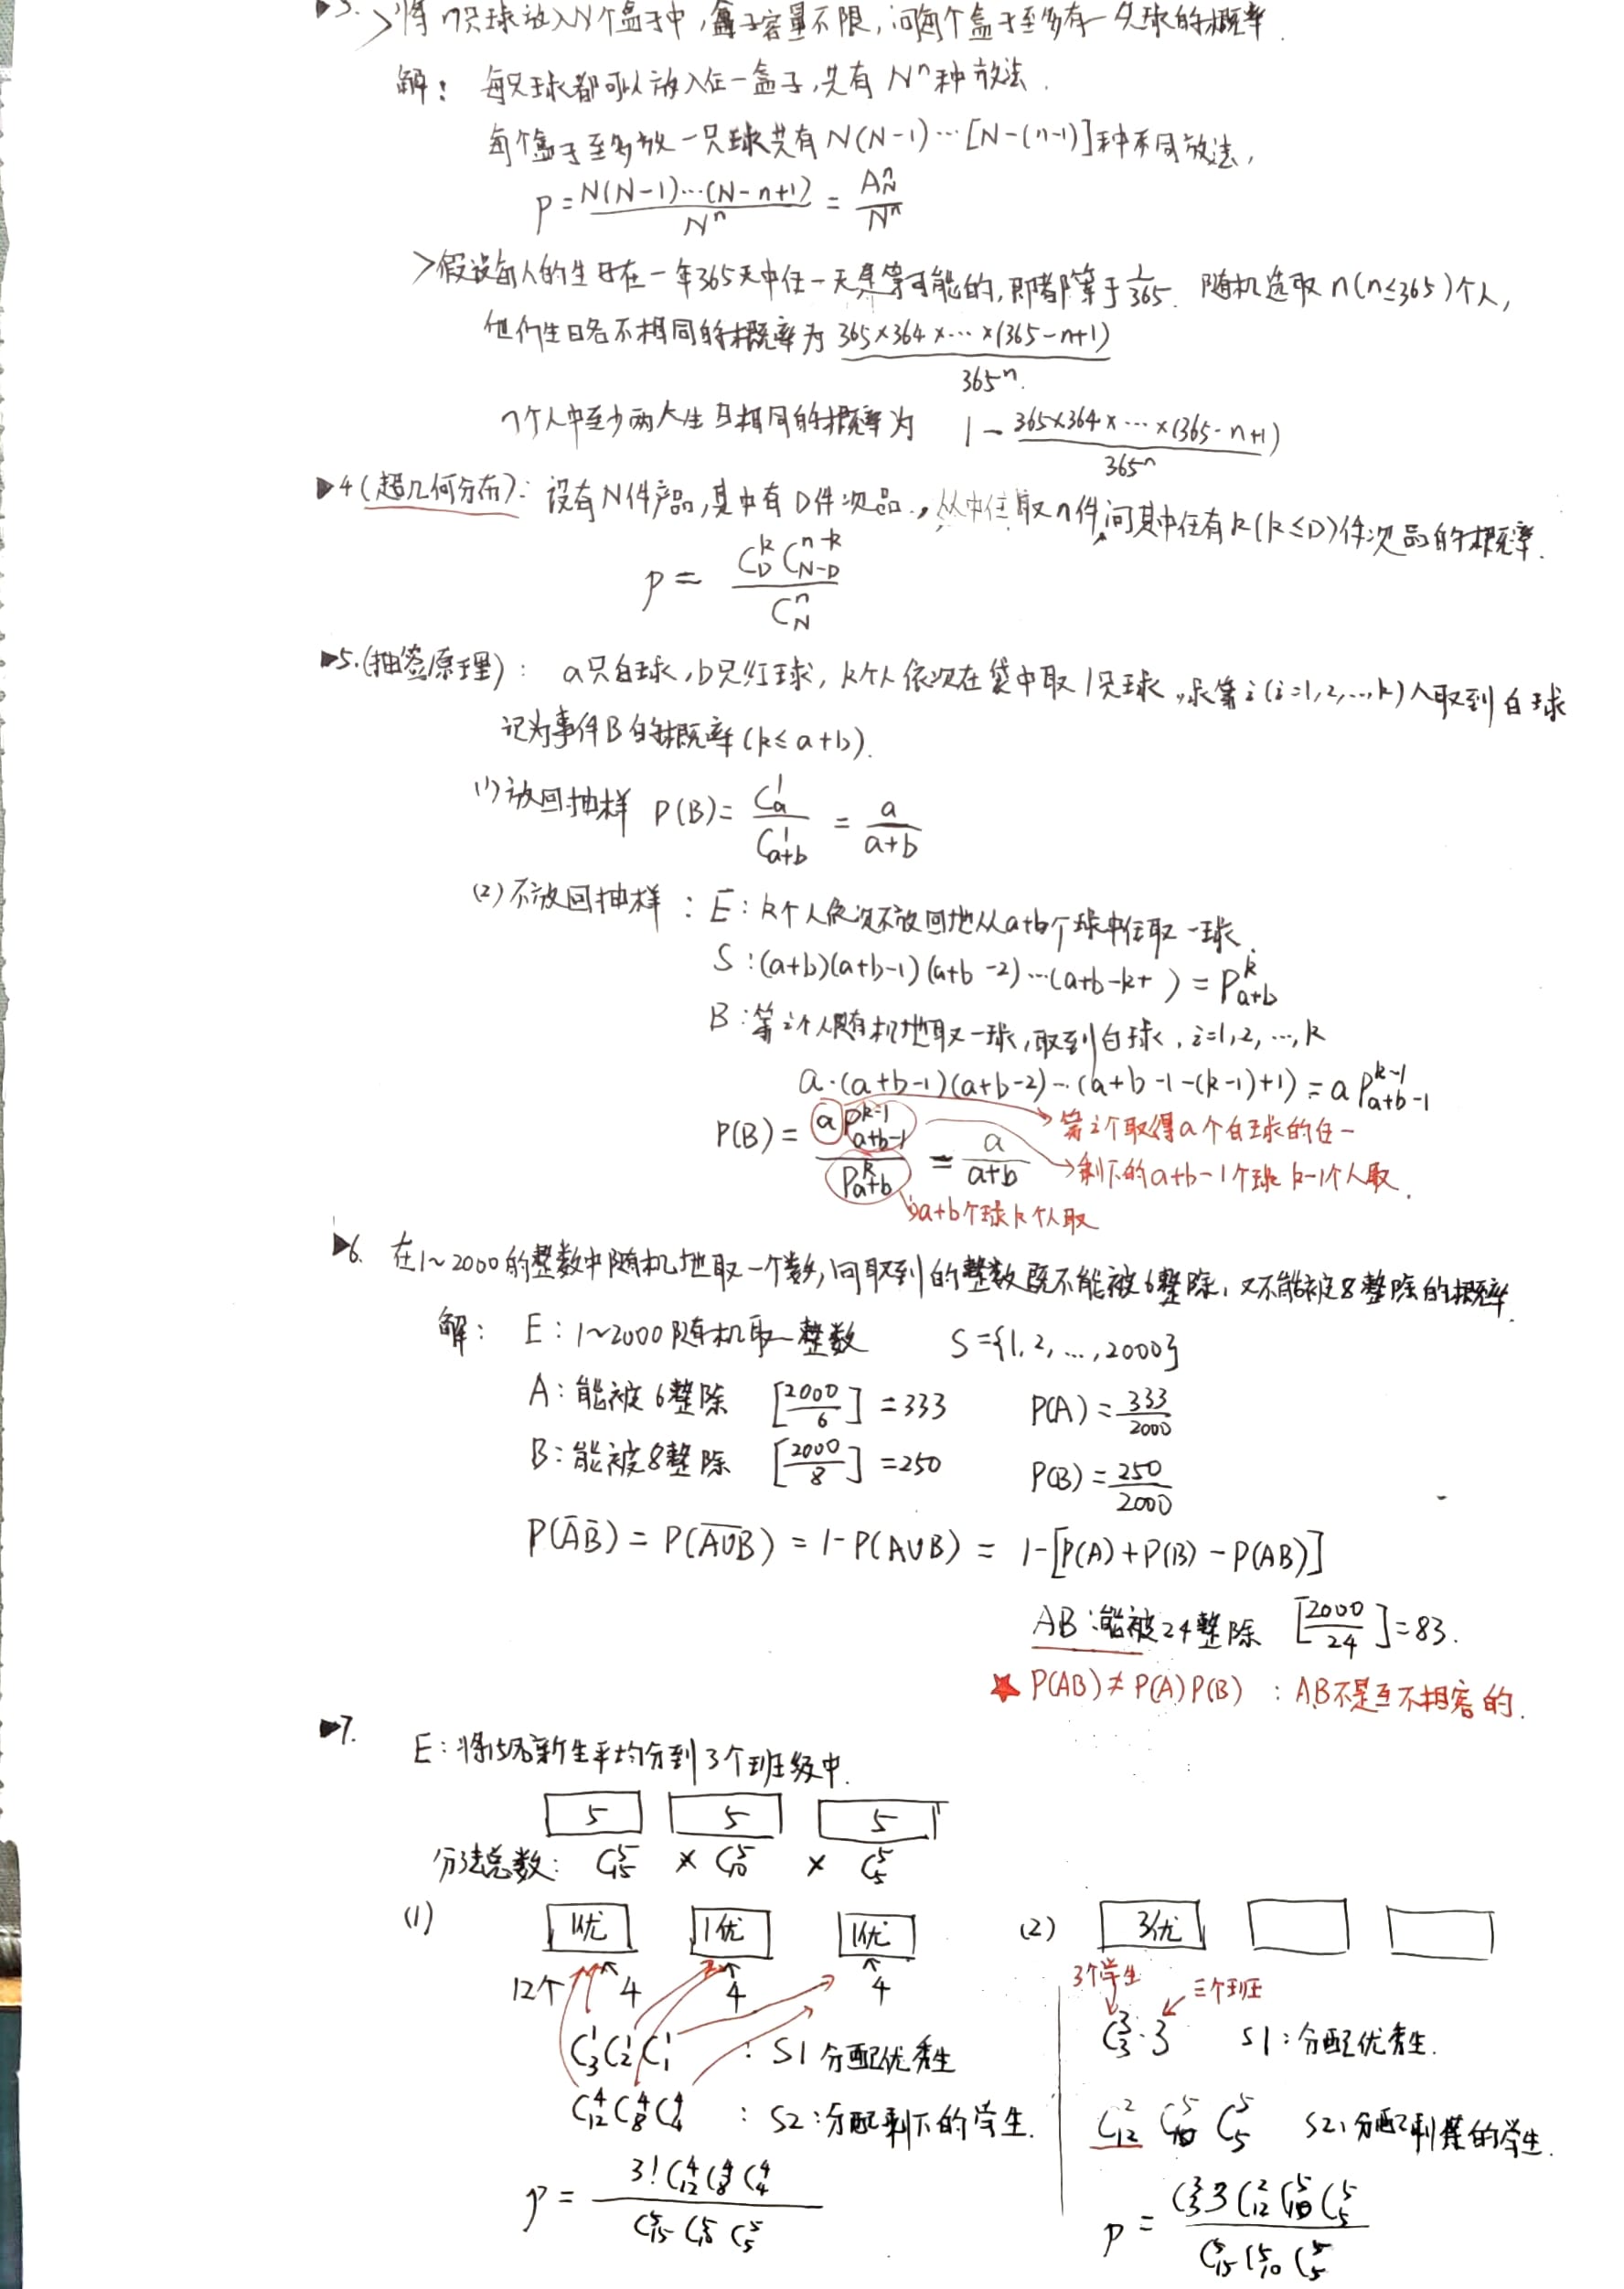 ▶3. >将n只球放入N个盒子中,盒子容量不限,问每个盒子至多有一只球的概率.
解: 每只球都可以放入任一盒子,共有 Nⁿ 种放法.
每个盒子至多放一只球共有 N(N-1)⋯[N-(n-1)]种不同放法,
p = N(N-1)⋯(N-n+1)/Nⁿ = A_N^n/Nⁿ
>假设每人的生日在一年365天中任一天是等可能的,即都等于1/365. 随机选取n(n≤365)个人,
他们生日各不相同的概率为 365×364×⋯×(365-n+1)/365ⁿ.
n个人中至少两人生日相同的概率为 1 - 365×364×⋯×(365-n+1)/365ⁿ
▶4(超几何分布): 设有N件产品,其中有D件次品.,从中任取n件,问其中任有k(k≤D)件次品的概率.
p = C_D^k C_{N-D}^{n-k}/C_N^n
▶5.(抽签原理): a只白球,b只红球, k个人依次在袋中取1只球,求第i(i=1,2,…,k)人取到白球
记为事件B的概率(k≤a+b).
(1)放回抽样 P(B)= C_a^1/C_{a+b}^1 = a/(a+b)
(2)不放回抽样: E: k个人依次不放回地从a+b个球中任取一球.
S:(a+b)(a+b-1)(a+b-2)⋯(a+b-k+ ) = P_{a+b}^k
B:第i个人随机地取一球,取到白球, i=1,2,⋯,k
a·(a+b-1)(a+b-2)⋯(a+b-1-(k-1)+1) = a P_{a+b-1}^{k-1}
P(B) = a P_{a+b-1}^{k-1}/P_{a+b}^k = a/(a+b)
第i个取得a个白球的任一
剩下的a+b-1个球 k-1个人取.
a+b个球k个人取
▶6. 在1~2000的整数中随机地取一个数,问取到的整数既不能被6整除,又不能被8整除的概率.
解: E: 1~2000随机取一整数 S={1,2,…,2000}
A: 能被6整除 [2000/6] = 333 P(A) = 333/2000
B: 能被8整除 [2000/8] = 250 P(B) = 250/2000
P(ĀB̄) = P(A̅∪̅B̅) = 1-P(A∪B) = 1-[P(A)+P(B)-P(AB)]
AB:能被24整除 [2000/24] = 83.
★ P(AB)≠P(A)P(B) : AB不是互不相容的.
▶7. E:将15名新生平均分到3个班级中.
5 5 5
分法总数: C_15^5 × C_10^5 × C_5^5
(1) 1优 1优 1优
12个 4 4 4
C_3^1 C_2^1 C_1^1 : S1 分配优秀生
C_12^4 C_8^4 C_4^4 : S2:分配剩下的学生.
p = 3! C_12^4 C_8^4 C_4^4/C_15^5 C_10^5 C_5^5
(2) 3优
3个学生 三个班
C_3^3·3 S1:分配优秀生.
C_12^2 C_10^5 C_5^5 S2:分配剩余的学生.
p = C_3^3 3 C_12^2 C_10^5 C_5^5/C_15^5 C_10^5 C_5^5